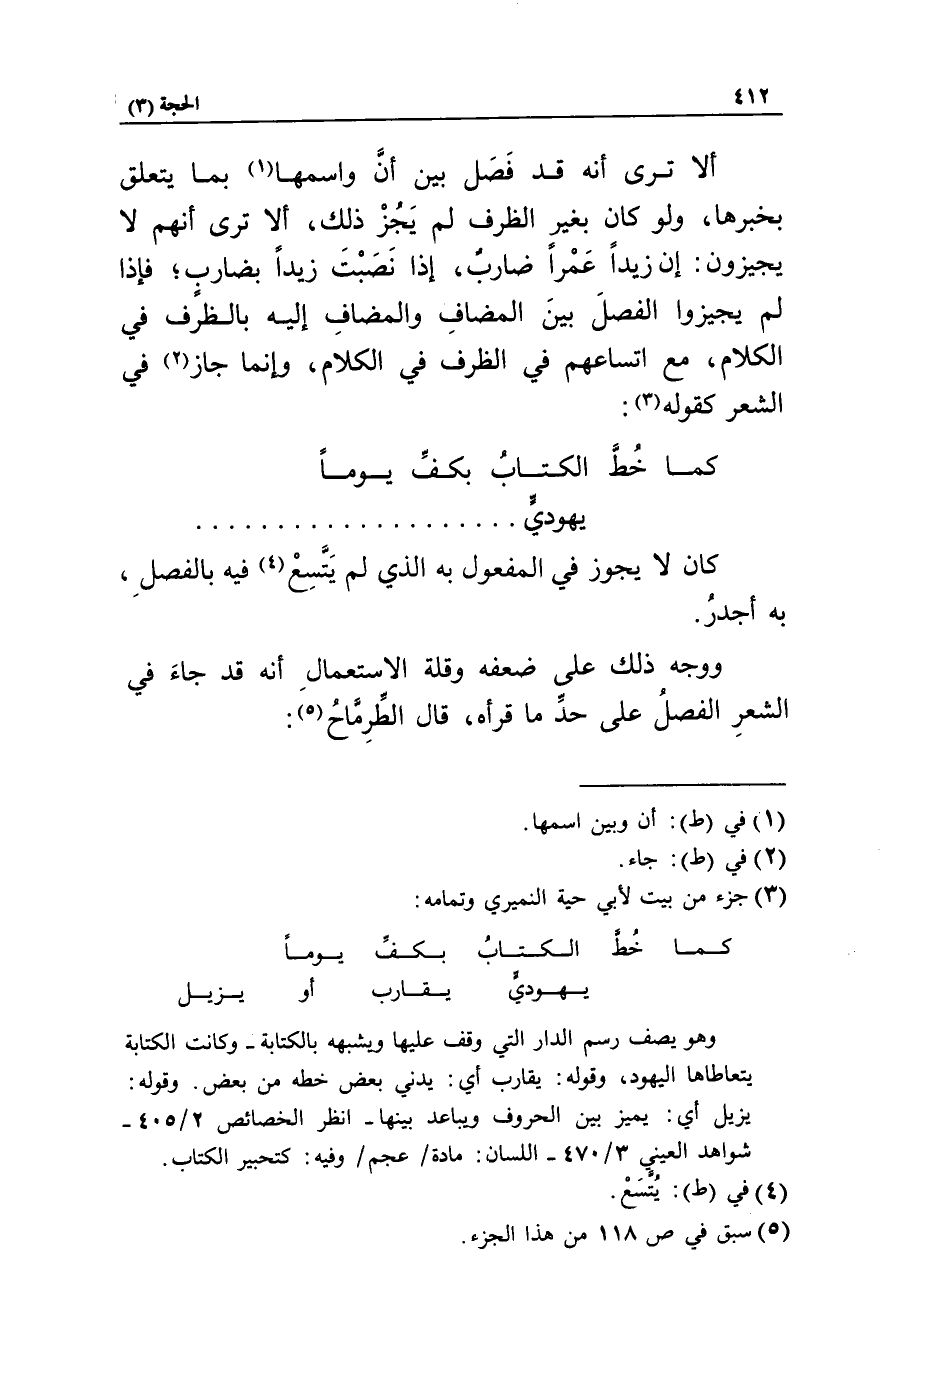 ٤١٢
الحجة (٣)
ألا تـرى أنه قـد فَصَل بين أنَّ واسمهـا(١) بمـا يتعلق
بخبرها، ولو كان بغير الظرف لم يَجُزْ ذلك، ألا ترى أنهم لا
يجيزون: إن زيداً عَمْراً ضاربٌ، إذا نَصَبْتَ زيداً بضاربٍ؛ فإذا
لم يجيزوا الفصلَ بينَ المضافِ والمضافِ إليـه بالـظرف في
الكلام، مع اتساعهم في الظرف في الكلام، وإنما جاز(٢) في
الشعر كقوله(٣):
كمـا خُطَّ الكتـابُ بكفِّ يـومـاً
يهوديٍّ....................
كان لا يجوز في المفعول به الذي لم يَتَّسِعْ(٤) فيه بالفصلِ،
به أجدرُ.
ووجه ذلك على ضعفه وقلة الاستعمالِ أنه قد جاءَ في
الشعرِ الفصلُ على حدِّ ما قرأه، قال الطِّرِمَّاحُ(٥):
(١) في (ط): أن وبين اسمها.
(٢) في (ط): جاء.
(٣) جزء من بيت لأبي حية النميري وتمامه:
كـمـا خُطَّ الـكـتـابُ بـكـفِّ يـومـاً
يـهـوديٍّ يـقـارب أو يـزيـل
وهو يصف رسم الدار التي وقف عليها ويشبهه بالكتابة ـ وكانت الكتابة
يتعاطاها اليهود، وقوله: يقارب أي: يدني بعض خطه من بعض. وقوله:
يزيل أي: يميز بين الحروف ويباعد بينها ـ انظر الخصائص ٤٠٥/٢ ـ
شواهد العيني ٤٧٠/٣ ـ اللسان: مادة/ عجم/ وفيه: كتحبير الكتاب.
(٤) في (ط): يُتَّسَعْ.
(٥) سبق في ص ١١٨ من هذا الجزء.